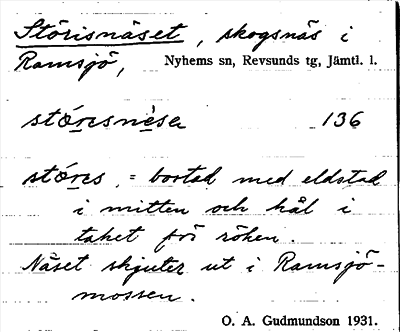 Störisnäset, skogsnäs i
Ramsjö, Nyhems sn, Revsunds tg, Jämtl. l.
stó̱resnè̱sa 136
stó̱res = bostad med eldstad
i mitten och hål i
taket för röken.
Näset skjuter ut i Ramsjö-
mossen.
O. A. Gudmundson 1931.